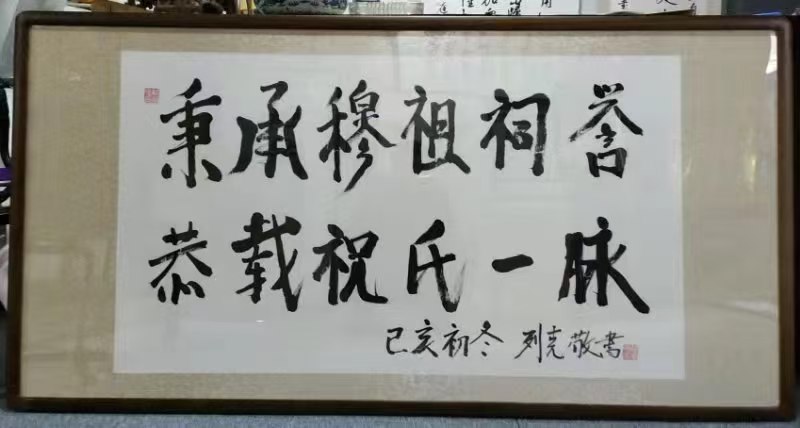 秉承穆祖祠誉
恭载祝氏一脉
己亥初冬 列克敬书